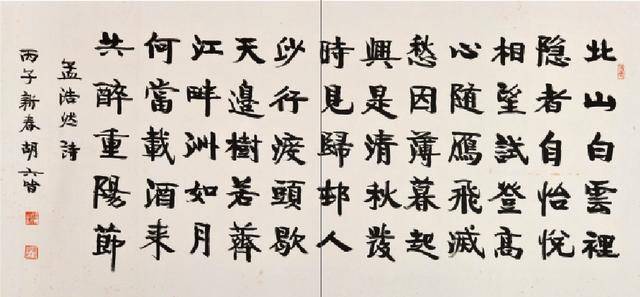 北山白雲裡
隐者自怡悅
相望試登高
心隨鴈飛滅
愁因薄暮起
興是清秋發
時見歸邨人
沙行渡頭歇
天邊樹若薺
江畔洲如月
何當載酒来
共醉重陽節
孟浩然詩
丙子新春胡六皆